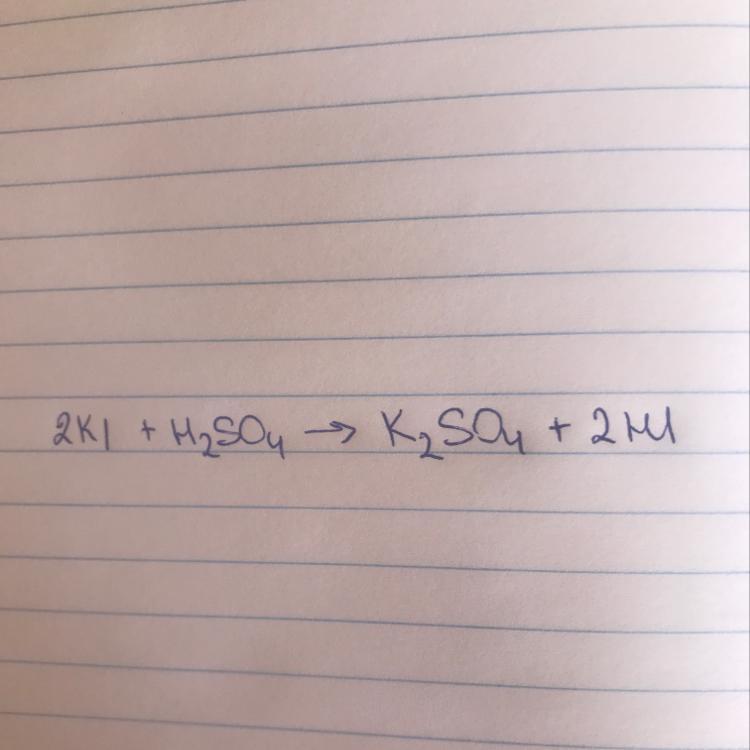 2KI + H₂SO₄ → K₂SO₄ + 2HI